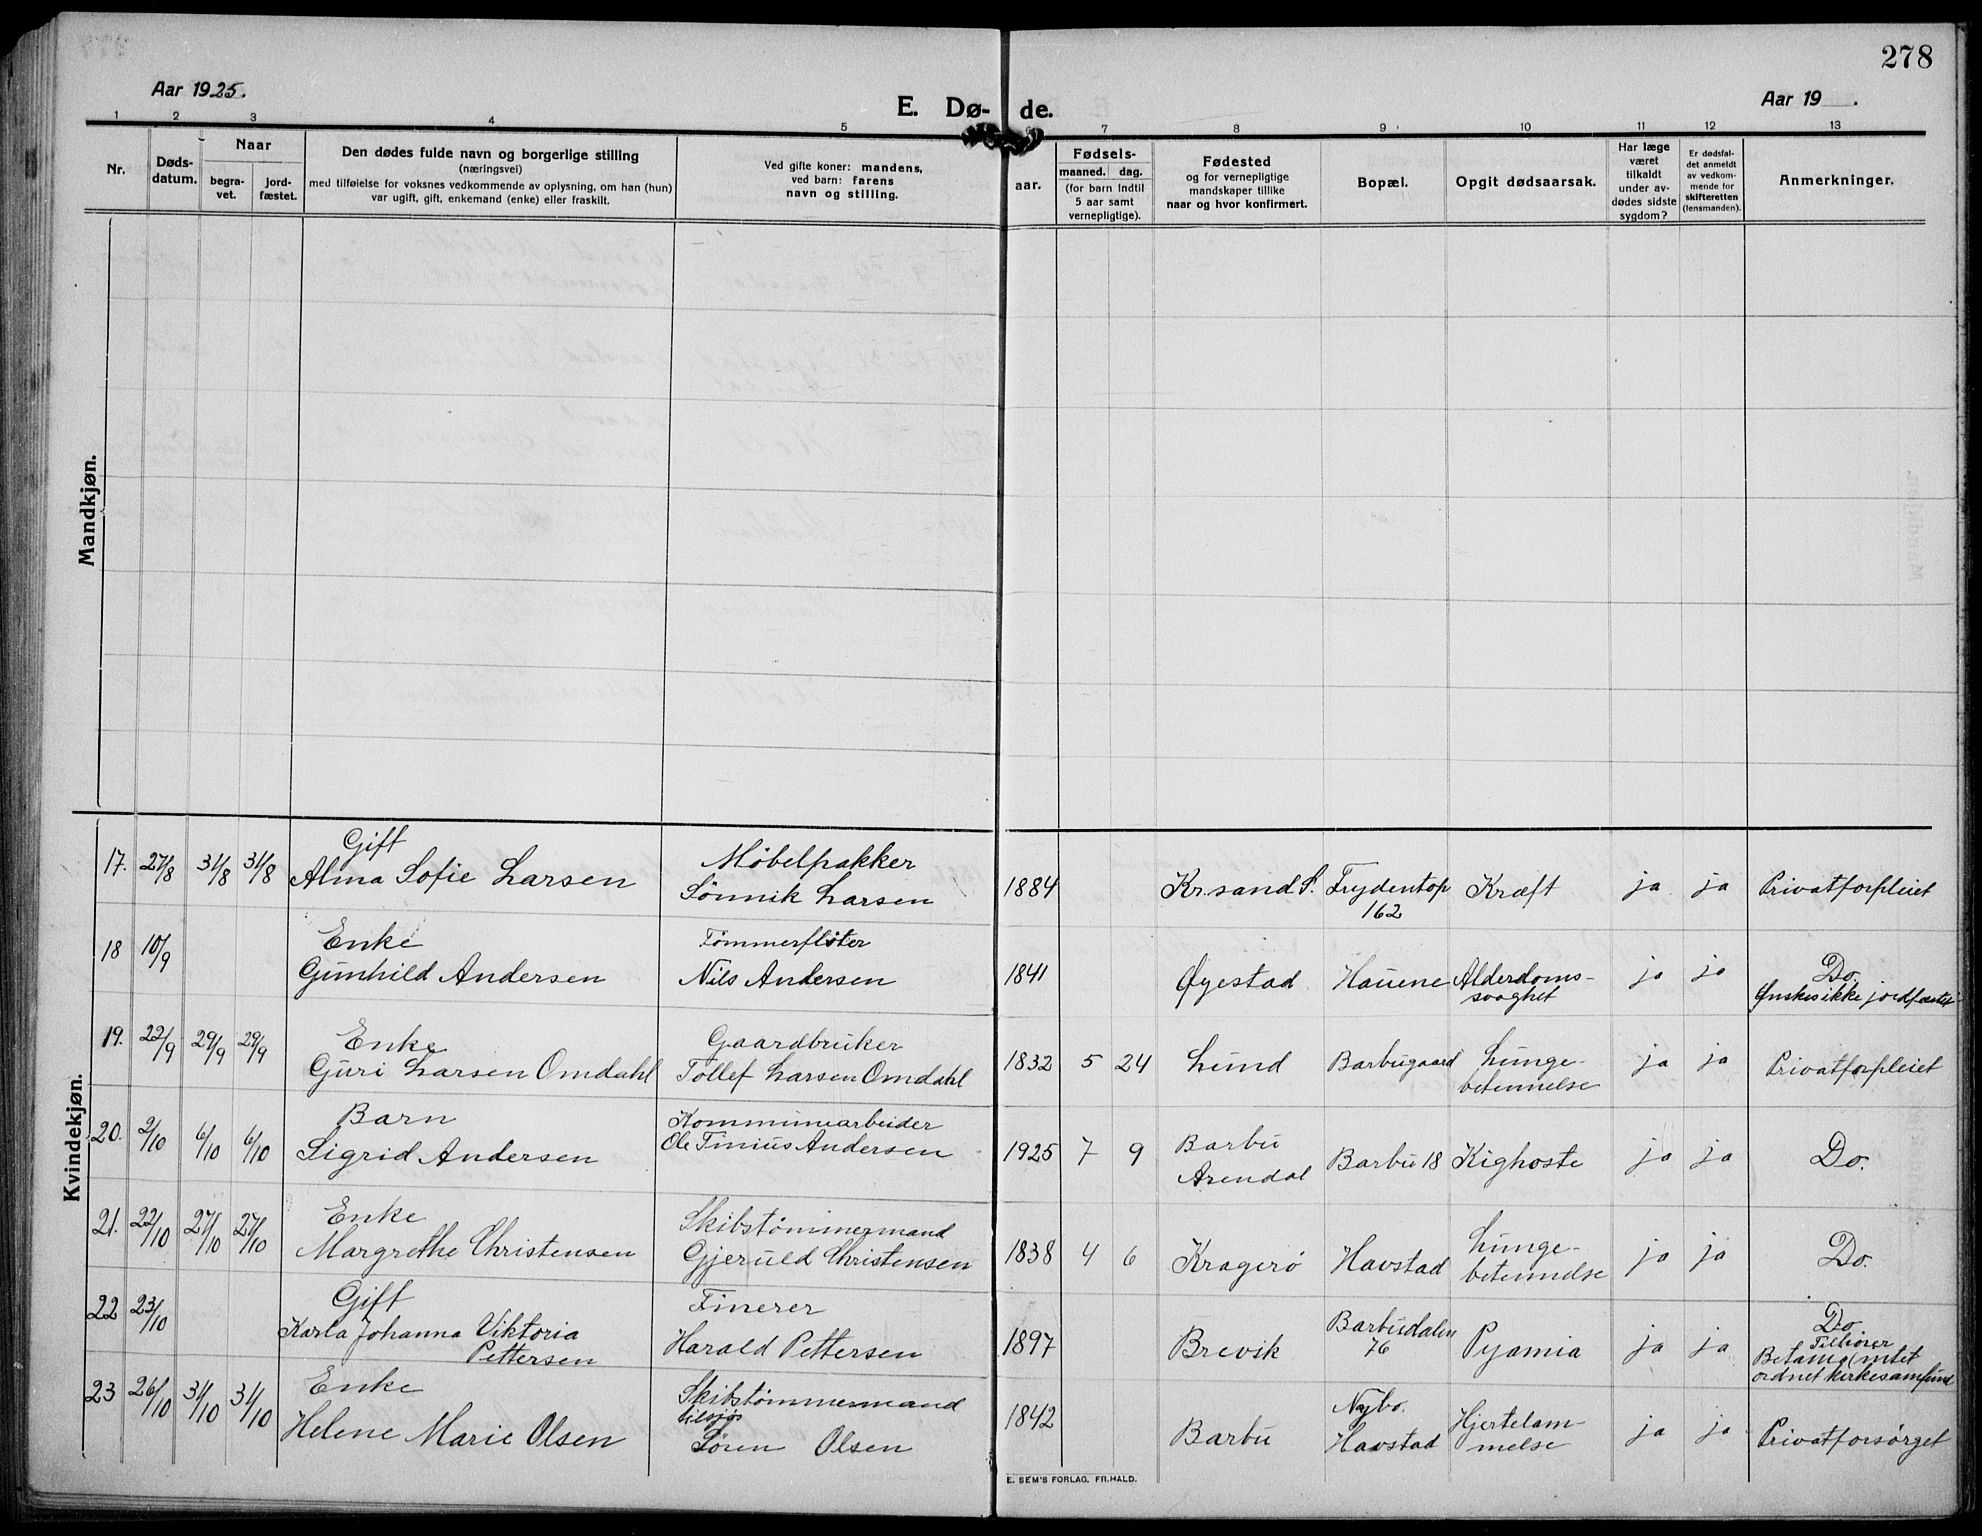 278
Aar 1925.
E. Dø- de.
Aar 19 .
1 2 3 4 5 6 7 8 9 10 11 12 13
Nr.
Døds-
datum.
Naar
begra-
vet.
jord-
fæstet.
Den dødes fulde navn og borgerlige stilling
(næringsvei)
med tilføielse for voksnes vedkommende av oplysning, om han (hun)
var ugift, gift, enkemand (enke) eller fraskilt.
Ved gifte koner: mandens,
ved barn: farens
navn og stilling.
Fødsels-
aar.
maaned. dag.
(for barn indtil
5 aar samt
vernepligtige).
Fødested
og for vernepligtige
mandskaper tillike
naar og hvor konfirmert.
Bopæl.
Opgit dødsaarsak.
Har læge
været
tilkaldt
under av-
dødes sidste
sygdom?
Er dødsfal-
det anmeldt
av vedkom-
mende for
skifteretten
(lensmanden).
Anmerkninger.
Mandkjøn.
Kvindekjøn.
17. 27/8 31/8 31/8 Gift
Alma Sofie Larsen
Møbelpakker
Sønnik Larsen
1884 Kr.sand S. Frydentop
162
Kræft ja ja Privatforpleiet
18 10/9 Enke
Gunhild Andersen
Tømmerfløter
Nils Andersen
1841 Øyestad Hauene Alderdoms-
svaghet
ja ja Do.
Ønskes ikke jordfæstet
19. 22/9 29/9 29/9 Enke
Guri Larsen Omdahl
Gaardbruker
Tollef Larsen Omdahl
1832 5 24 Lund Barbugaard Lunge-
betennelse
ja ja Privatforpleiet
20. 2/10 6/10 6/10 Barn
Sigrid Andersen
Kommunearbeider
Ole Tinius Andersen
1925 7 9 Barbu
Arendal
Barbu 18 Kighoste ja ja Do.
21. 22/10 27/10 27/10 Enke
Margrethe Christensen
Skibstømmermand
Gjeruld Christensen
1838 4 6 Kragerø Havstad Lunge-
betennelse
ja ja Do.
22 23/10 Gift
Karla Johanna Viktoria
Pettersen
Finerer
Harald Pettersen
1897 Brevik Barbudalen
76
Pyamia ja ja Do
Tilhører
Betania (intet
ordnet kirkesamfund
23 26/10 31/10 31/10 Enke
Helene Marie Olsen
Skibstømmermand
tilsjøs
Søren Olsen
1842 Barbu Nybo.
Havstad
Hjertelam-
melse
ja ja Privatforsørget
E. SEM'S FORLAG, FR.HALD.